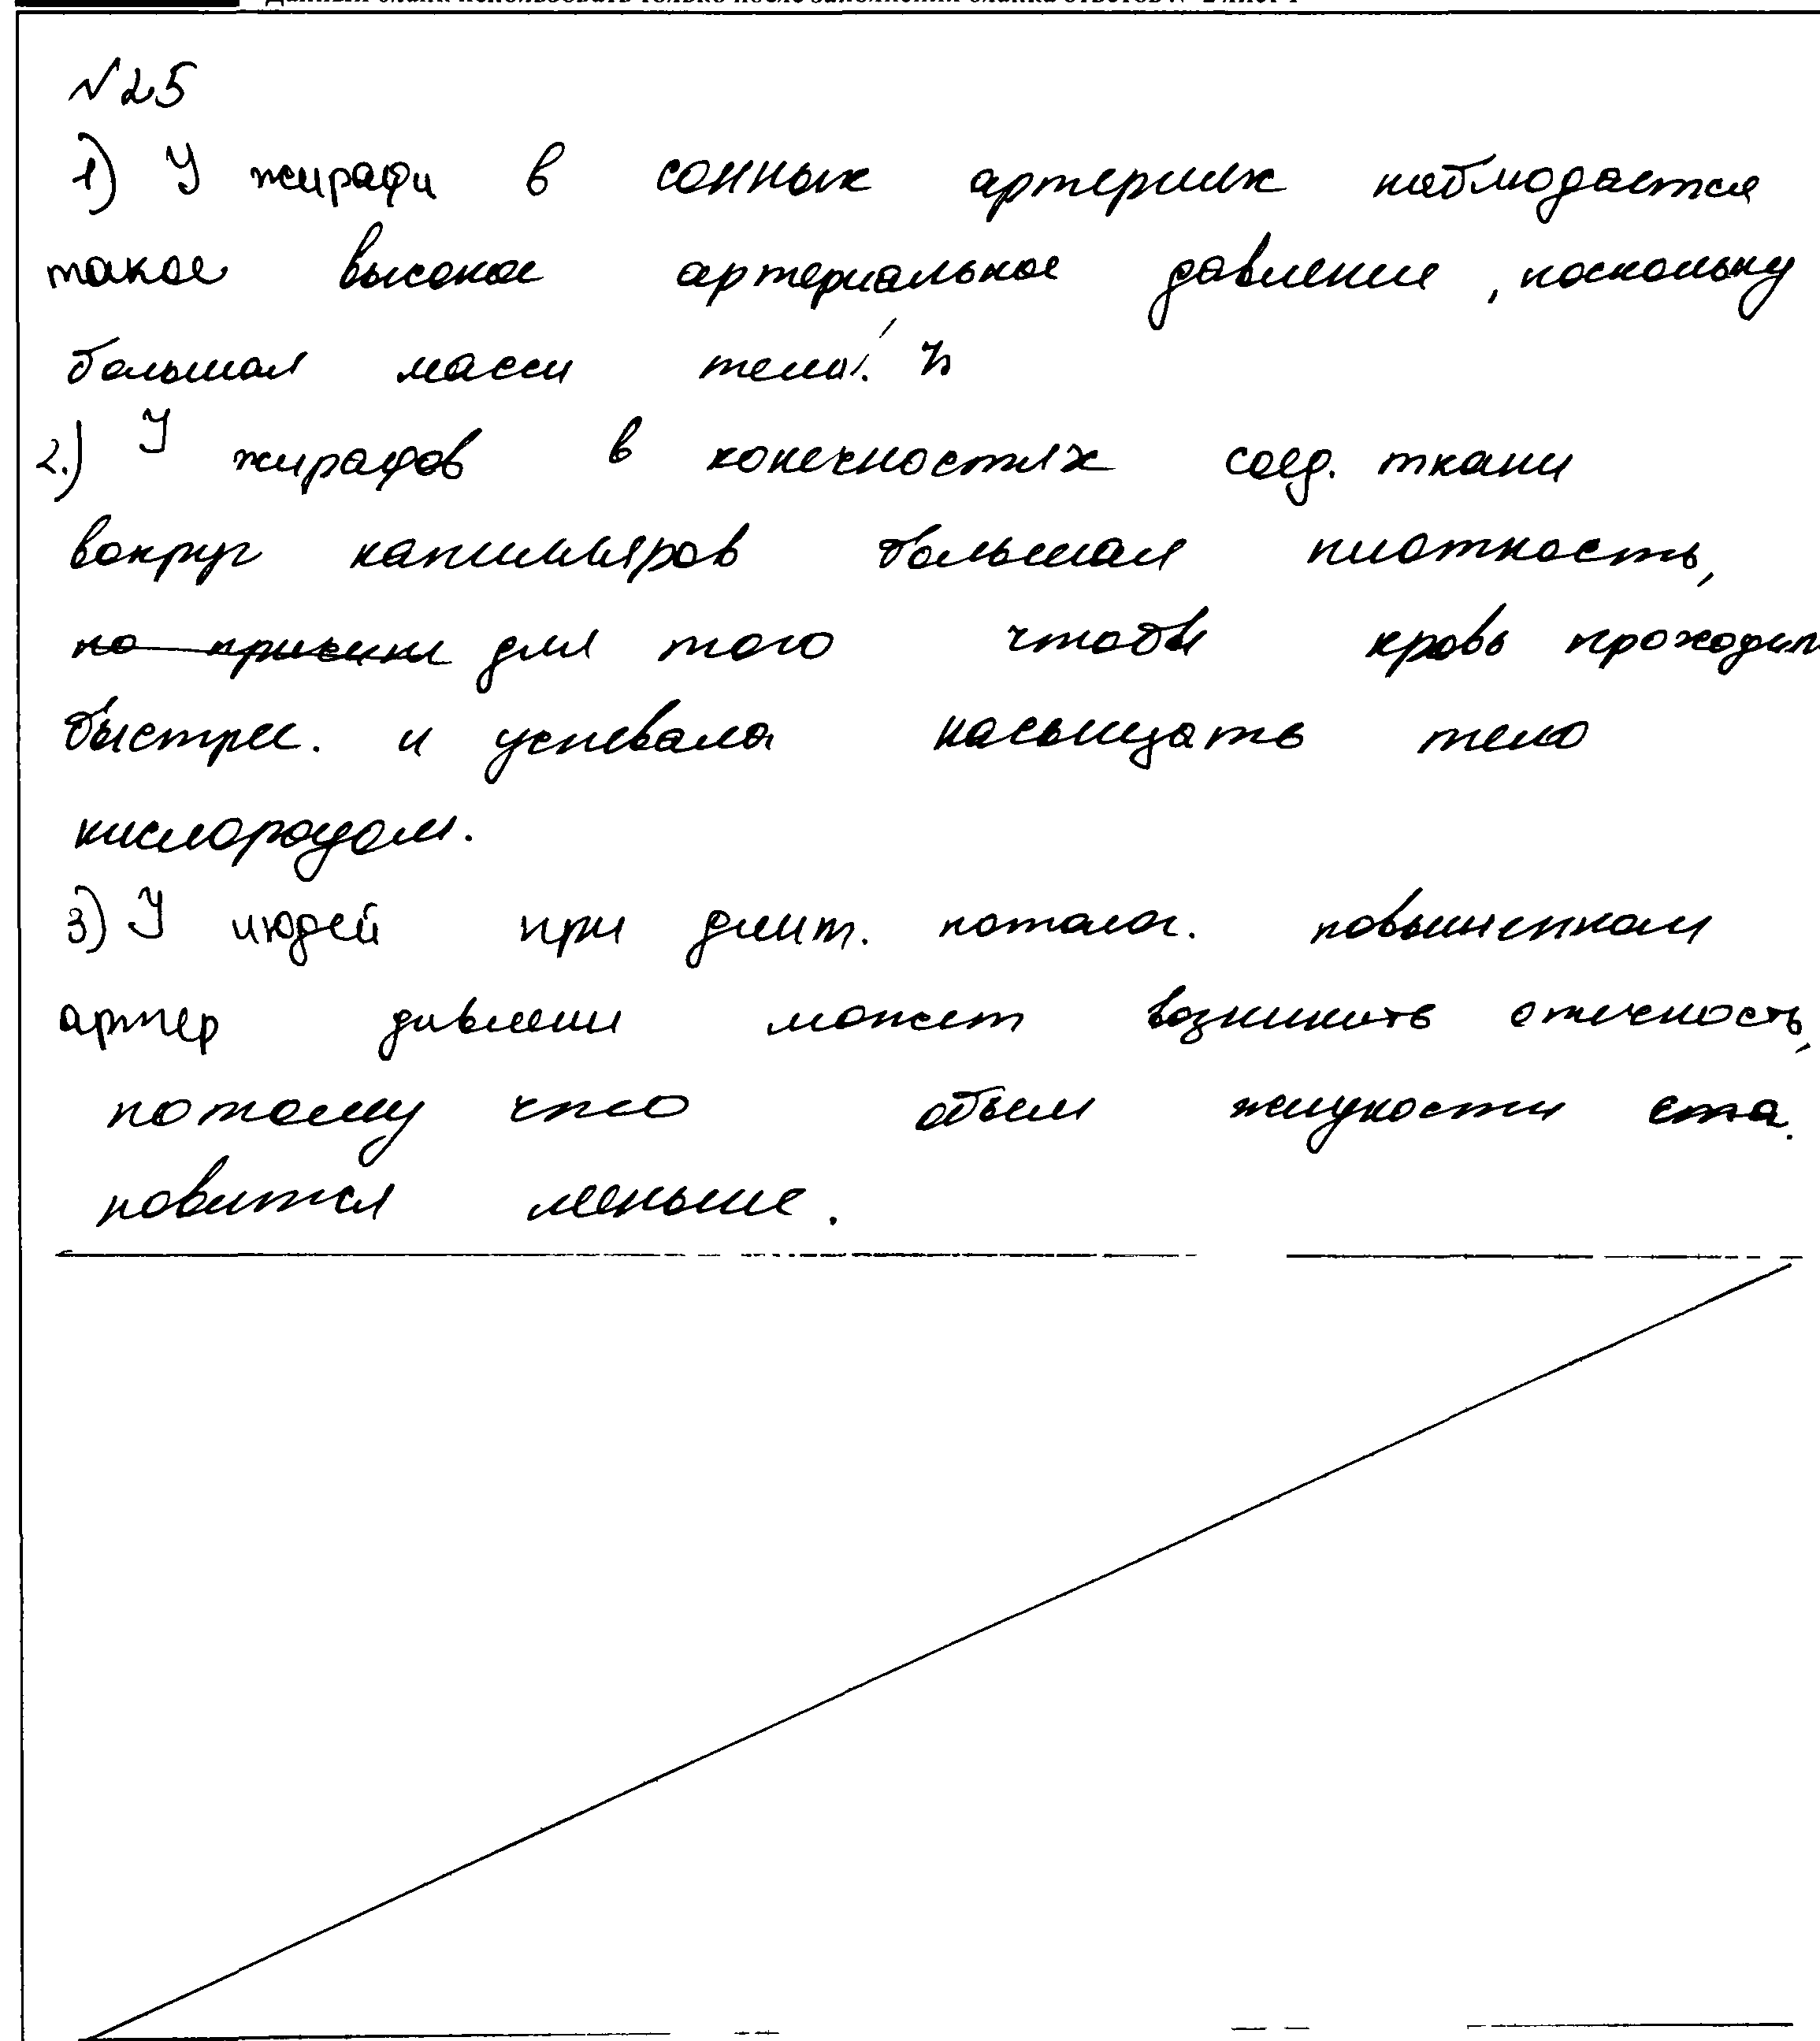 №25
1) У жирафа в сонных артериях наблюдается
такое высокое артериальное давление, поскольку
большая масса тела.
2.) У жирафов в конечностях соед. ткани
вокруг капилляров большая плотность,
по причине для того чтобы кровь проходил
быстрее. и успевала насыщать тело
кислородом.
3) У людей при длит. потолог. повышенном
артер давлении может возникать отечность,
потому что объем жидкости ста.
новится меньше.